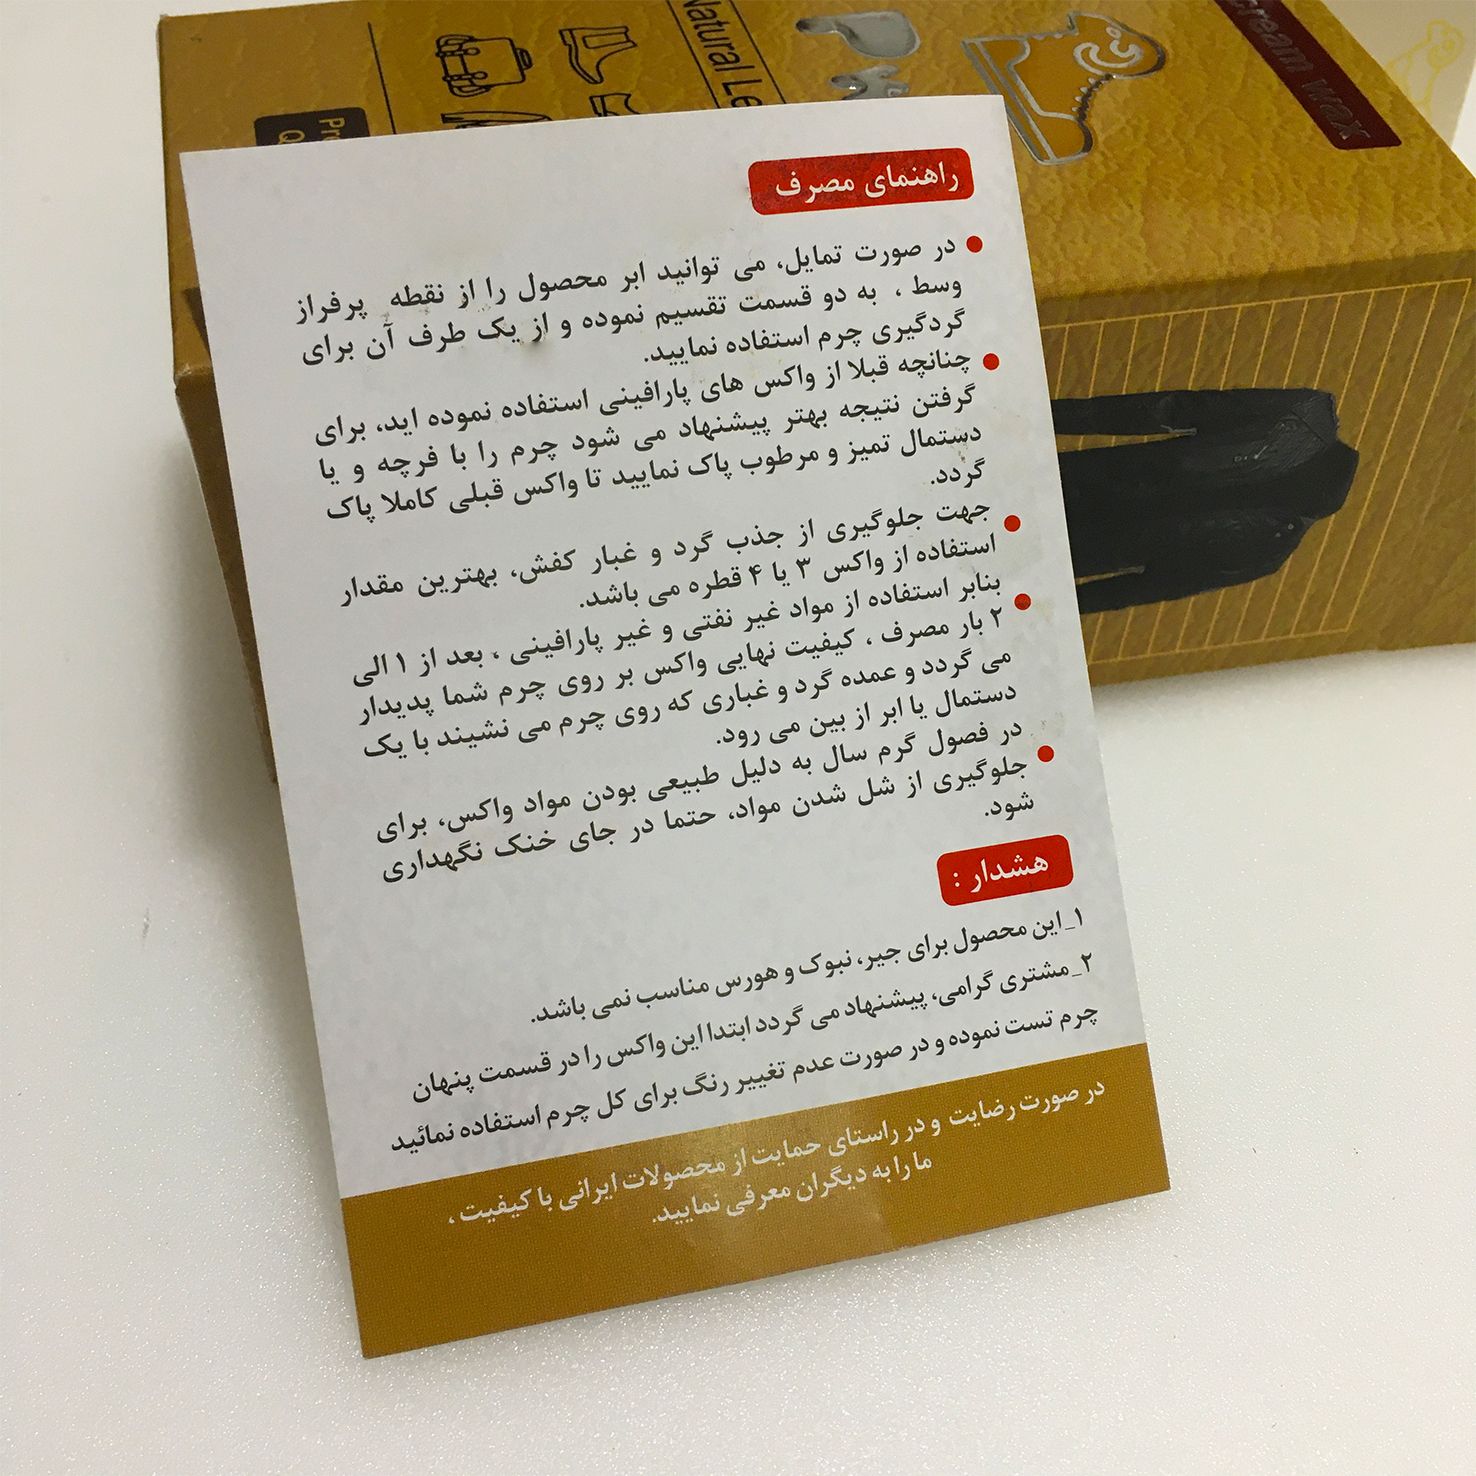 cream wax
Natural Le
Pr
Q
راهنمای مصرف
در صورت تمایل، می توانید ابر محصول را از نقطه پرفراز
وسط ، به دو قسمت تقسیم نموده و از یک طرف آن برای
گردگیری چرم استفاده نمایید.
چنانچه قبلا از واکس های پارافینی استفاده نموده اید، برای
گرفتن نتیجه بهتر پیشنهاد می شود چرم را با فرچه و یا
دستمال تمیز و مرطوب پاک نمایید تا واکس قبلی کاملا پاک
گردد.
جهت جلوگیری از جذب گرد و غبار کفش، بهترین مقدار
استفاده از واکس ۳ یا ۴ قطره می باشد.
بنابر استفاده از مواد غیر نفتی و غیر پارافینی ، بعد از ۱ الی
۲ بار مصرف ، کیفیت نهایی واکس بر روی چرم شما پدیدار
می گردد و عمده گرد و غباری که روی چرم می نشیند با یک
دستمال یا ابر از بین می رود.
در فصول گرم سال به دلیل طبیعی بودن مواد واکس، برای
جلوگیری از شل شدن مواد، حتما در جای خنک نگهداری
شود.
هشدار :
۱_این محصول برای جیر، نبوک و هورس مناسب نمی باشد.
۲_مشتری گرامی، پیشنهاد می گردد ابتدا این واکس را در قسمت پنهان
چرم تست نموده و در صورت عدم تغییر رنگ برای کل چرم استفاده نمائید
در صورت رضایت و در راستای حمایت از محصولات ایرانی با کیفیت ،
ما را به دیگران معرفی نمایید.